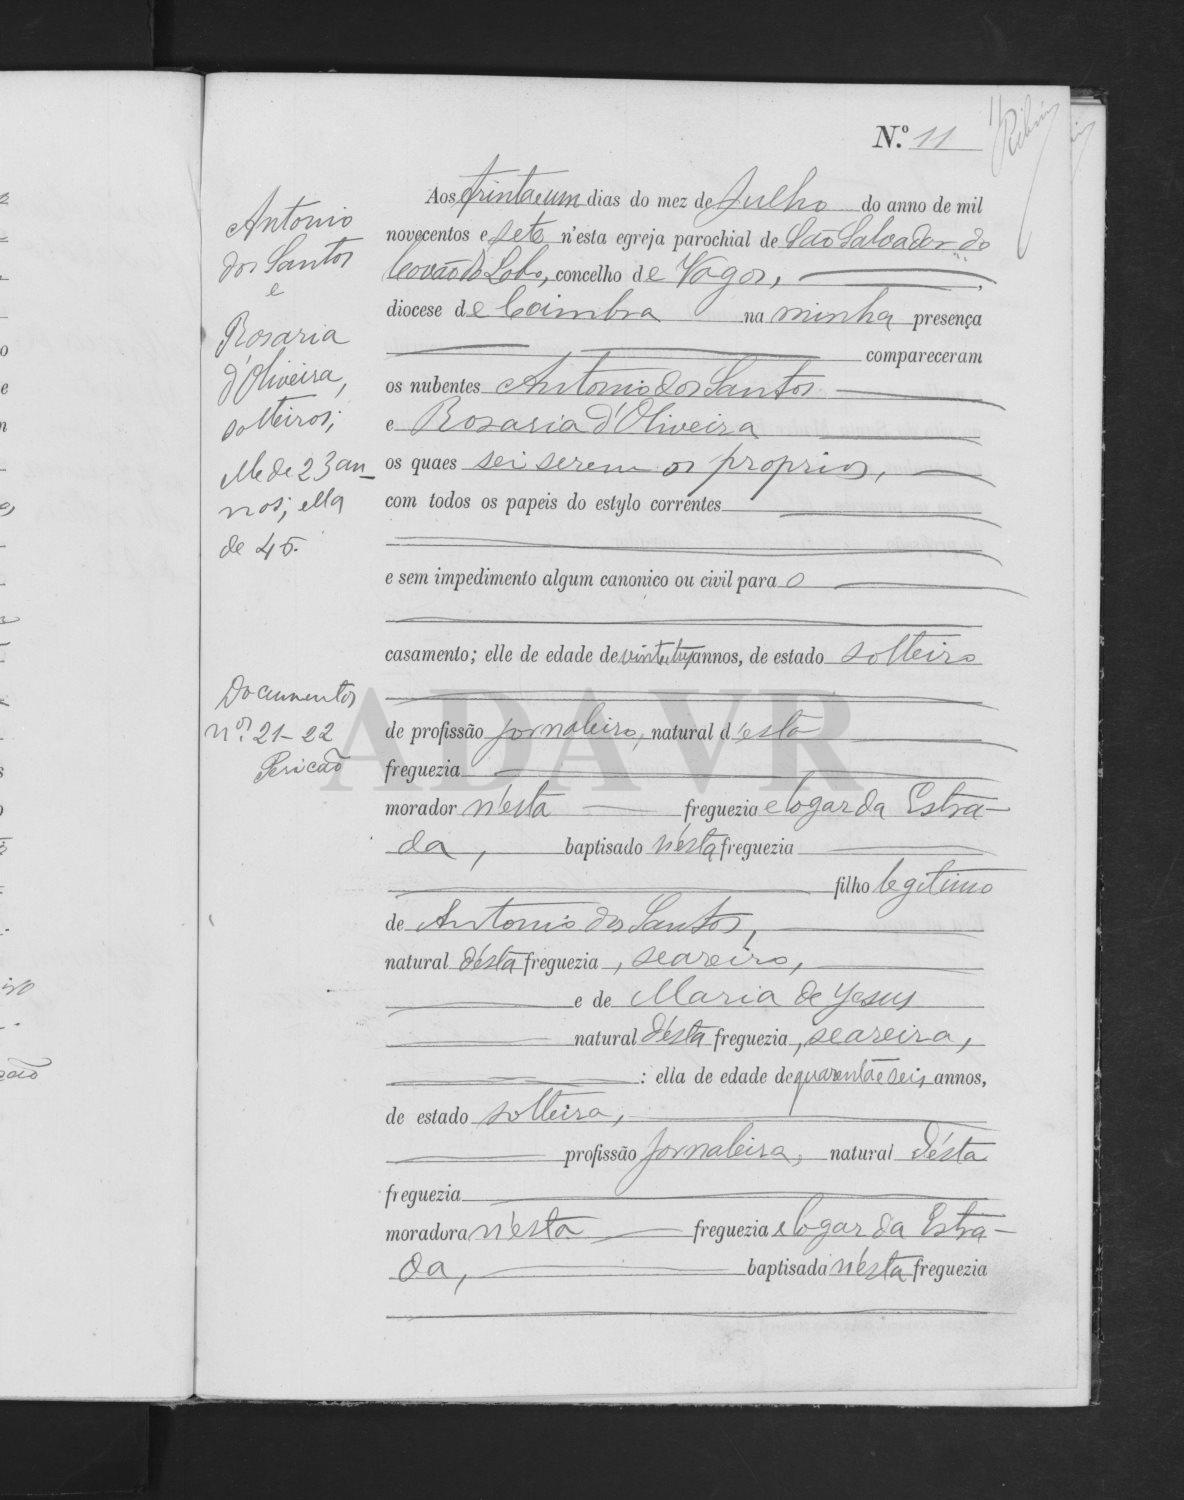 N.º 11
11
Aos trinta e um dias do mez de Julho do anno de mil
novecentos e sete n'esta egreja parochial de São Salvador do
Covão do Lobo, concelho de Vagos,
diocese de Coimbra na minha presença
compareceram
os nubentes Antonio dos Santos
e Rosaria d'Oliveira
os quaes sei serem os proprios,
com todos os papeis do estylo correntes
e sem impedimento algum canonico ou civil para o
casamento; elle de edade de vinte e tres annos, de estado solteiro
de profissão jornaleiro, natural d'esta
freguezia
morador n'esta freguezia e logar da Estra-
da, baptisado n'esta freguezia
filho legitimo
de Antonio dos Santos,
natural d'esta freguezia, seareiro,
e de Maria de Jesus
natural d'esta freguezia, seareira,
: ella de edade de quarenta e seis annos,
de estado solteira,
profissão jornaleira, natural d'esta
freguezia
moradora n'esta freguezia e logar da Estra-
da, baptisada n'esta freguezia
Antonio
dos Santos
e
Rosaria
d'Oliveira,
solteiros;
elle de 23 an-
nos; ella
de 46.
Documentos
n.os 21-22
ADAVR